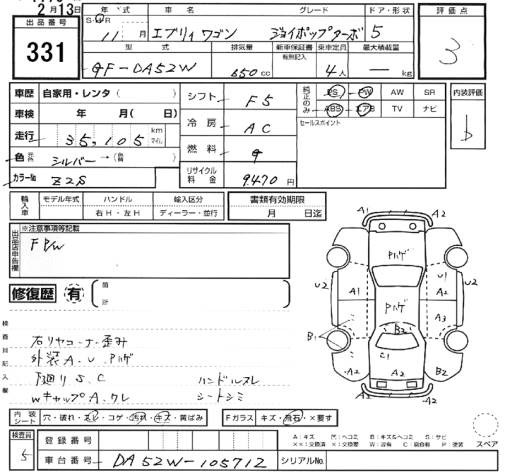 2月13日
出品番号
331
年式 車名 グレード ドア・形状
S・H 11月 エブリィワゴン ジョイポップターボ 5
型式 排気量 新車保証書 乗車定員 最大積載量
有無記入
GF-DA52W 650cc 4人 — kg
評価点
3
車歴 自家用・レンタ( )
車検 年 月( 日)
走行 35,105 km マイル
色 シルバー→( )
カラー№ Z2S
シフト F5
冷房 AC
燃料
リサイクル料金 9470円
純正のみ PS PW AW SR
ABS エアB TV ナビ
セールスポイント
内装評価
D
輸入車 モデル年式 ハンドル 輸入区分
右H・左H ディーラー・並行
書類有効期限
月 日迄
※注意事項等記載
出品店申告欄
F P/W
修復歴 有 箇所
検査員記入欄
右リヤコーナー歪み
外装A.U.Pハゲ
下廻りS.C ハンドルスレ
WキャップA.ワレ シートシミ
A2 A2
Pハゲ
U2 A1 A2 U2
Pハゲ
A1 A3
B1 B2
C1
A2 B2
A2 A2
内装シート 穴・破れ・スレ・コゲ・汚れ・キズ・黄ばみ
Fガラス キズ・飛石・×要す
検査員 5
登録番号
車台番号 DA52W-105712
シリアルNo.
A:キズ 穴:ヘコミ B:キズ&ヘコミ S:サビ
××:交換済 ×:要交換 W:波有 C:腐食有 P:塗装
スペア